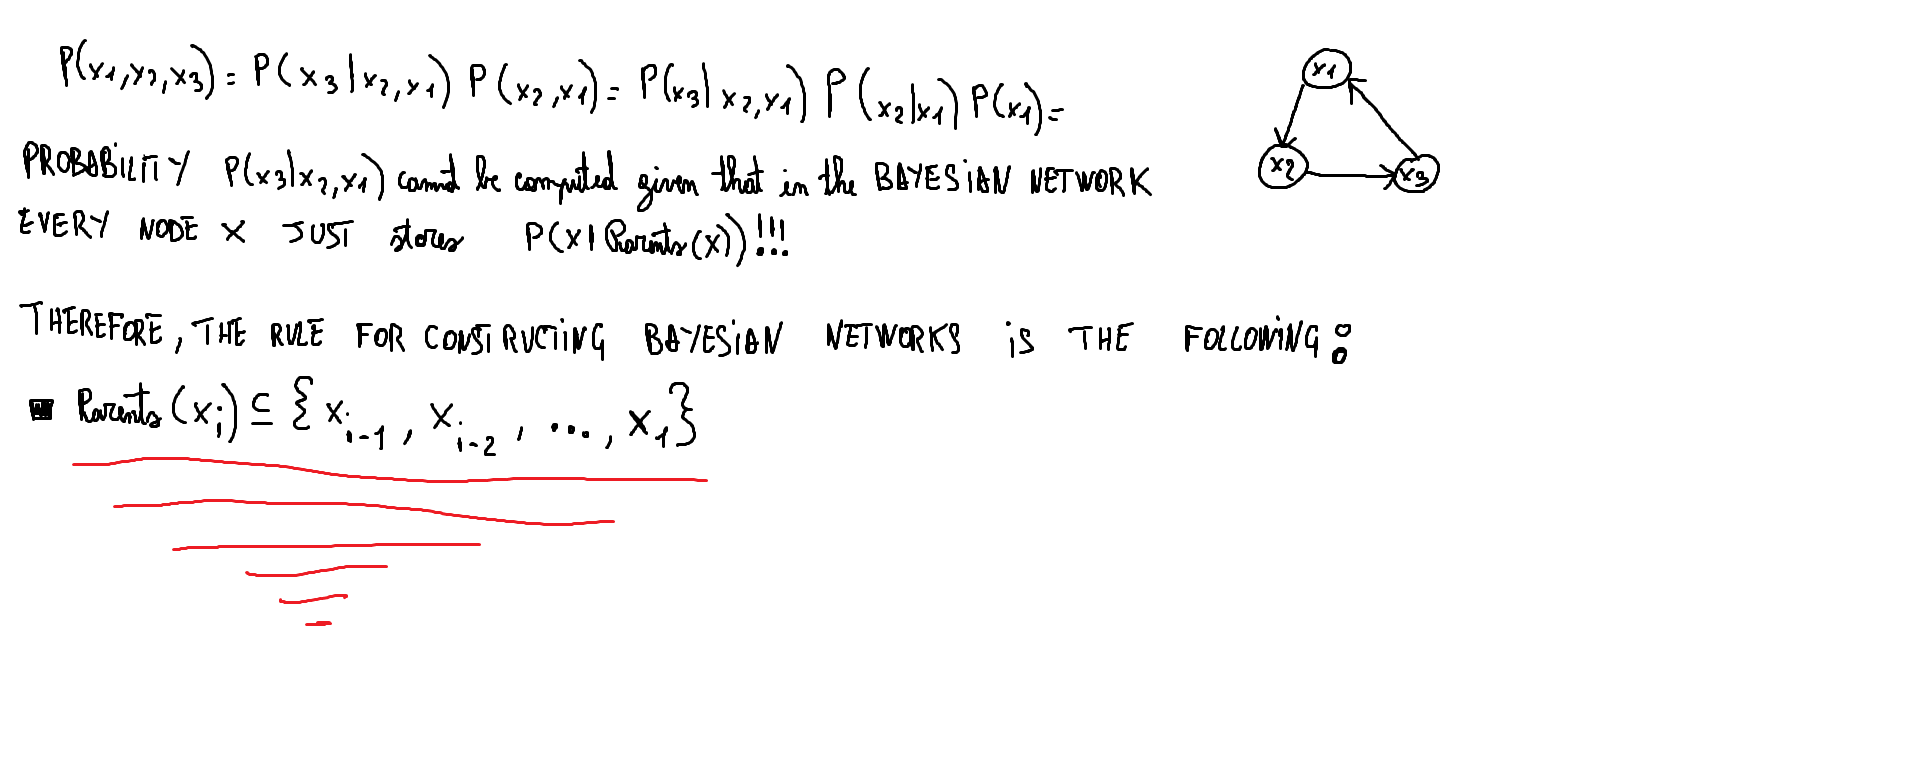 P(x1,x2,x3) = P(x3|x2,x1) P(x2,x1) = P(x3|x2,x1) P(x2|x1) P(x1) =
x1
x2
x3
PROBABILITY P(x3|x2,x1) cannot be computed given that in the BAYESiAN NETWORK
EVERY NODE X JUST stores P(X|Parents(X))!!!
THEREFORE, THE RULE FOR CONSTRUCTiNG BAYESiAN NETWORKS iS THE FOLLOWiNG:
■ Parents(Xi) ⊆ {Xi-1, Xi-2, ..., X1}